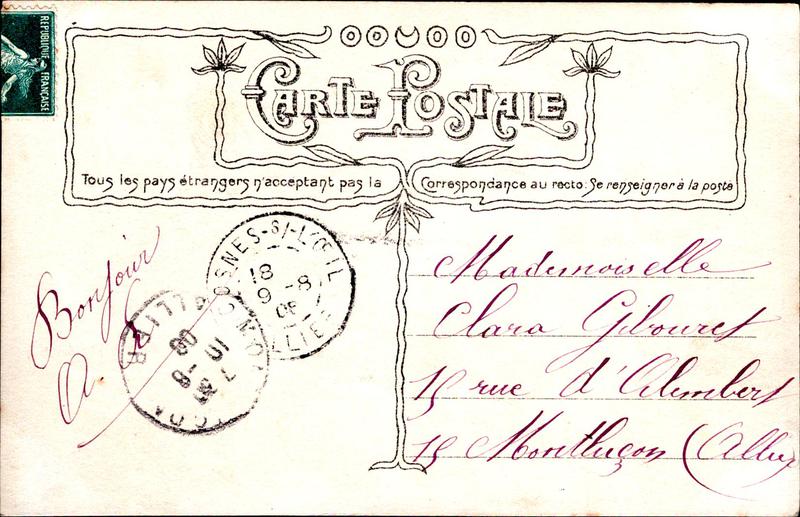 REPUBLIQUE FRANÇAISE
CARTE POSTALE
Tous les pays étrangers n'acceptant pas la Correspondance au recto: Se renseigner à la poste
OSNES-S/-L'ŒIL
18
9-8
08
ALLIER
10-8
08
ALLIER
Bonjour
A.
Mademoiselle
Clara Gibouret
15 rue d'Alembert
15 Montluçon (Allier